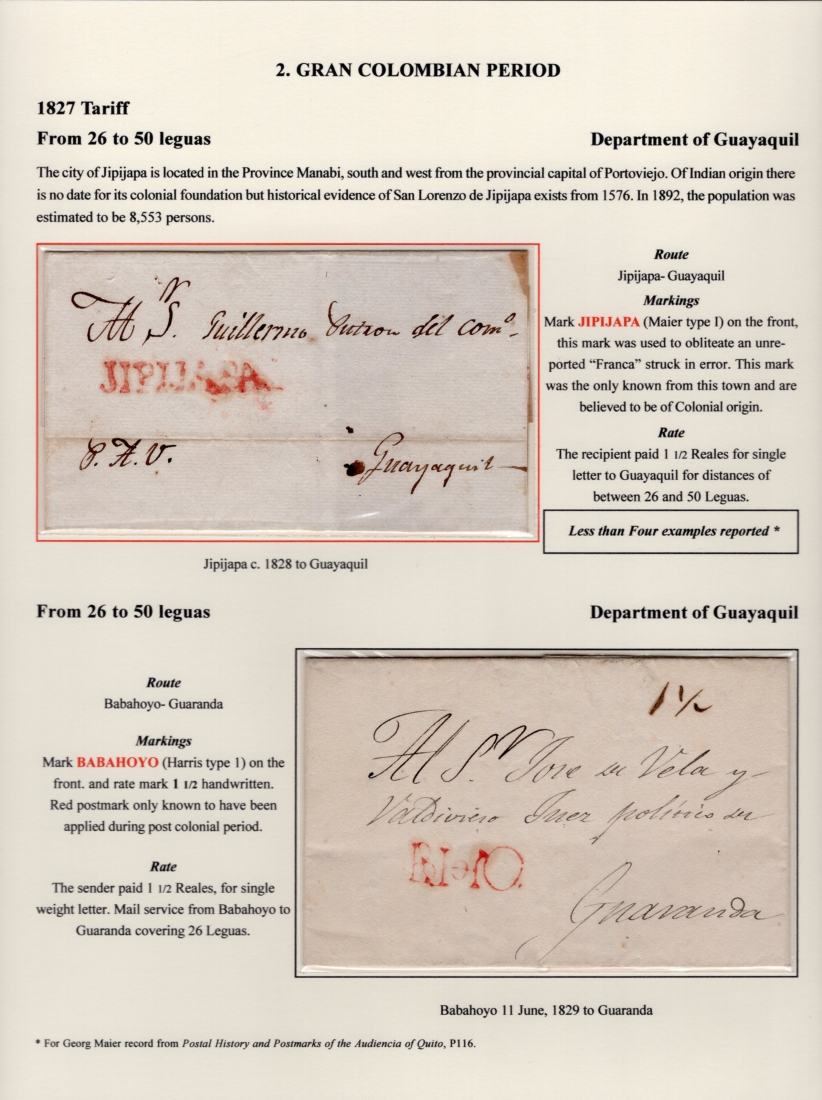 2. GRAN COLOMBIAN PERIOD
1827 Tariff
From 26 to 50 leguas Department of Guayaquil
The city of Jipijapa is located in the Province Manabi, south and west from the provincial capital of Portoviejo. Of Indian origin there
is no date for its colonial foundation but historical evidence of San Lorenzo de Jipijapa exists from 1576. In 1892, the population was
estimated to be 8,553 persons.
Al Sr. Guillermo del como
JIPIJAPA
P. A. V.
Guayaquil
Jipijapa c. 1828 to Guayaquil
Route
Jipijapa- Guayaquil
Markings
Mark JIPIJAPA (Maier type I) on the front,
this mark was used to obliteate an unre-
ported “Franca” struck in error. This mark
was the only known from this town and are
believed to be of Colonial origin.
Rate
The recipient paid 1 1/2 Reales for single
letter to Guayaquil for distances of
between 26 and 50 Leguas.
Less than Four examples reported *
From 26 to 50 leguas Department of Guayaquil
Route
Babahoyo- Guaranda
Markings
Mark BABAHOYO (Harris type 1) on the
front. and rate mark 1 1/2 handwritten.
Red postmark only known to have been
applied during post colonial period.
Rate
The sender paid 1 1/2 Reales, for single
weight letter. Mail service from Babahoyo to
Guaranda covering 26 Leguas.
1 1/2
Al Sr. Jose de Vela y
Valdivieso Juez politico de
Guaranda
Babahoyo 11 June, 1829 to Guaranda
* For Georg Maier record from Postal History and Postmarks of the Audiencia of Quito, P116.